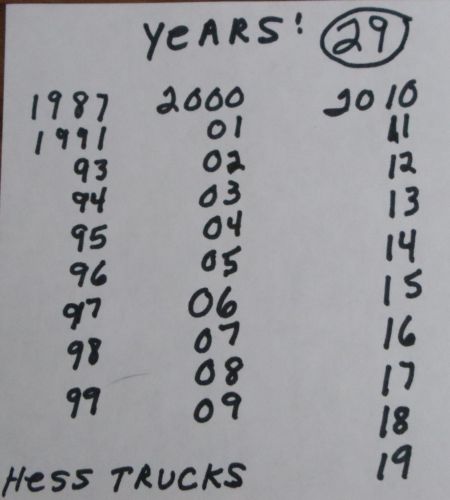 YEARS! 29
1987 2000 2010
1991 01 11
93 02 12
94 03 13
95 04 14
96 05 15
97 06 16
98 07 17
99 08 18
09 19
HESS TRUCKS